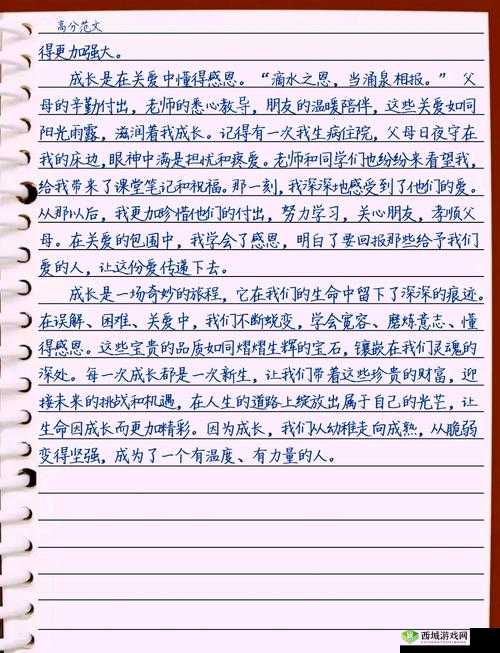 高分范文
得更加强大。
成长是在关爱中懂得感恩。“滴水之恩，当涌泉相报。”父
母的辛勤付出，老师的悉心教导，朋友的温暖陪伴，这些关爱如同
阳光雨露，滋润着我成长。记得有一次我生病住院，父母日夜守在
我的床边，眼神中满是担忧和疼爱。老师和同学们也纷纷来看望我，
给我带来了课堂笔记和祝福。那一刻，我深深地感受到了他们的爱。
从那以后，我更加珍惜他们的付出，努力学习，关心朋友，孝顺父
母。在关爱的包围中，我学会了感恩，明白了要回报那些给予我们
爱的人，让这份爱传递下去。
成长是一场奇妙的旅程，它在我们的生命中留下了深深的痕迹。
在误解、困难、关爱中，我们不断蜕变，学会宽容、磨炼意志、懂
得感恩。这些宝贵的品质如同熠熠生辉的宝石，镶嵌在我们灵魂的
深处。每一次成长都是一次新生，让我们带着这些珍贵的财富，迎
接未来的挑战和机遇，在人生的道路上绽放出属于自己的光芒，让
生命因成长而更加精彩。因为成长，我们从幼稚走向成熟，从脆弱
变得坚强，成为了一个有温度、有力量的人。
西城游戏网